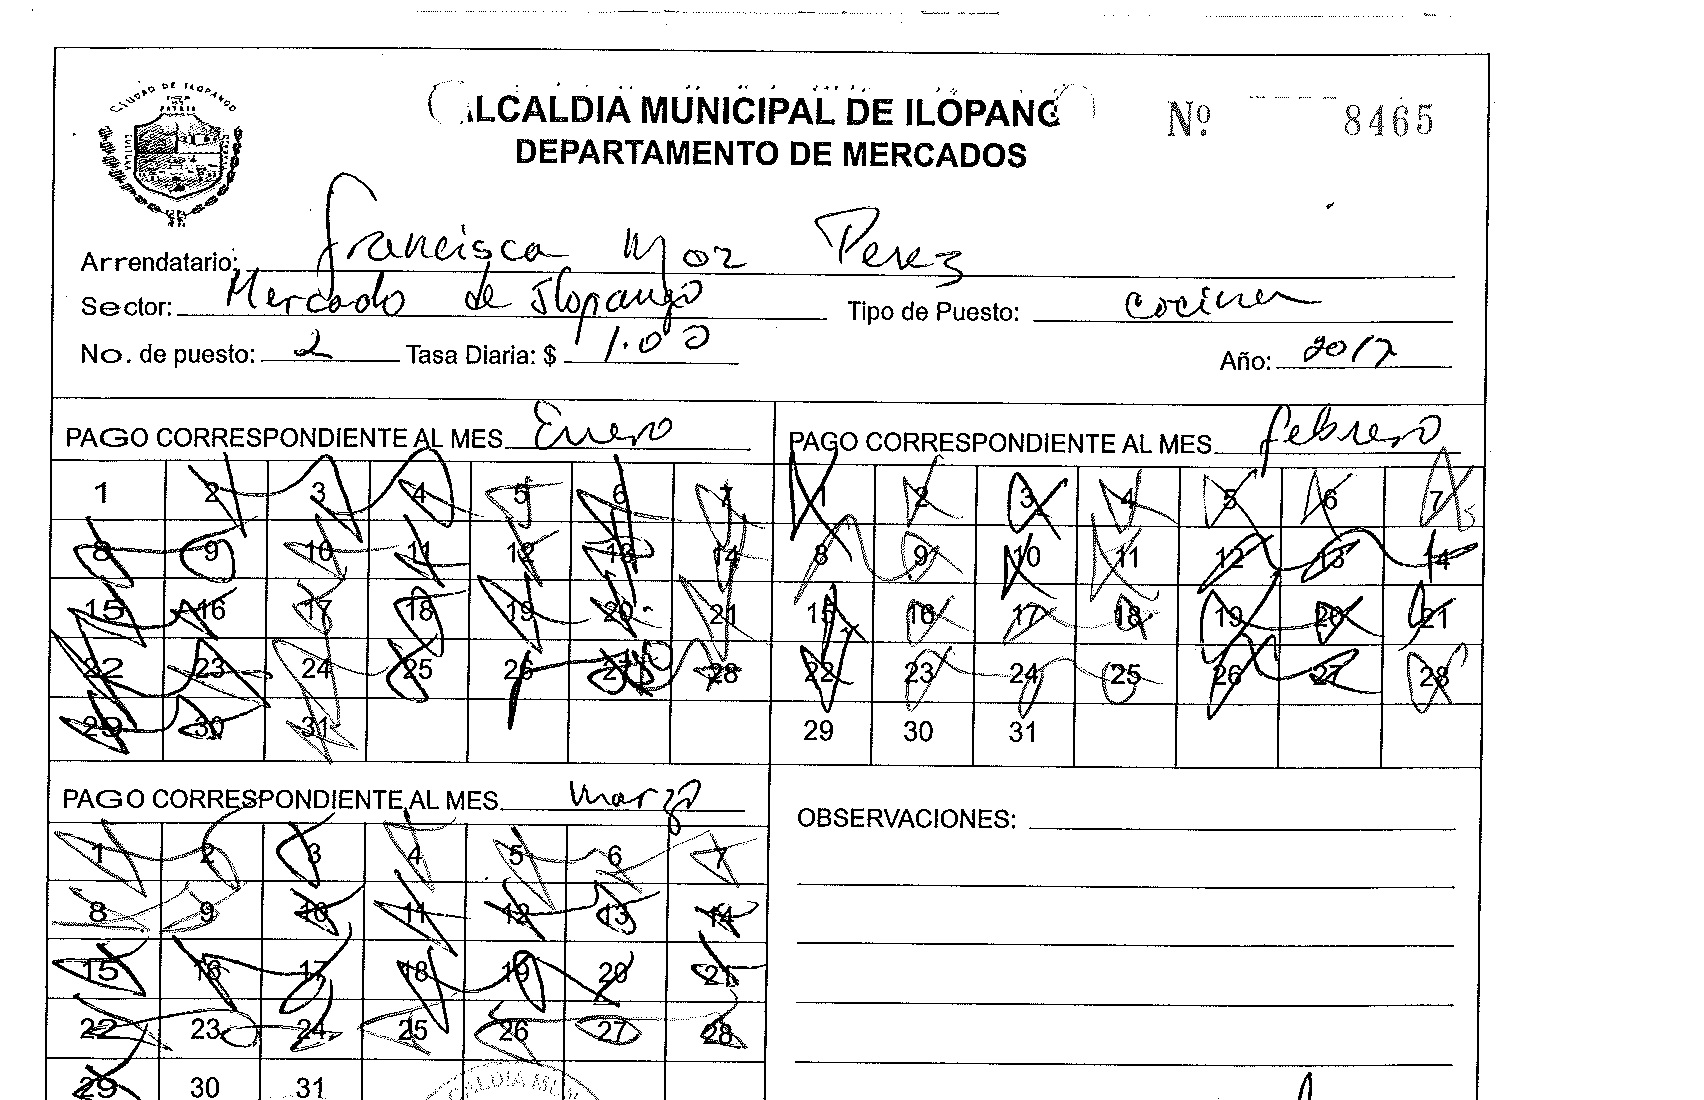 CIUDAD DE ILOPANGO
ALCALDIA MUNICIPAL DE ILOPANGO
Nº 8465
DEPARTAMENTO DE MERCADOS
Arrendatario: Francisca Moz Perez
Sector: Mercado de Ilopango Tipo de Puesto: cocina
No. de puesto: 2 Tasa Diaria: $ 1.00 Año: 2017
PAGO CORRESPONDIENTE AL MES Enero
1 2 3 4 5 6 7
8 9 10 11 12 13 14
15 16 17 18 19 20 21
22 23 24 25 26 27 28
29 30 31
PAGO CORRESPONDIENTE AL MES febrero
1 2 3 4 5 6 7
8 9 10 11 12 13 14
15 16 17 18 19 20 21
22 23 24 25 26 27 28
29 30 31
PAGO CORRESPONDIENTE AL MES marzo
1 2 3 4 5 6 7
8 9 10 11 12 13 14
15 16 17 18 19 20 21
22 23 24 25 26 27 28
29 30 31
OBSERVACIONES: